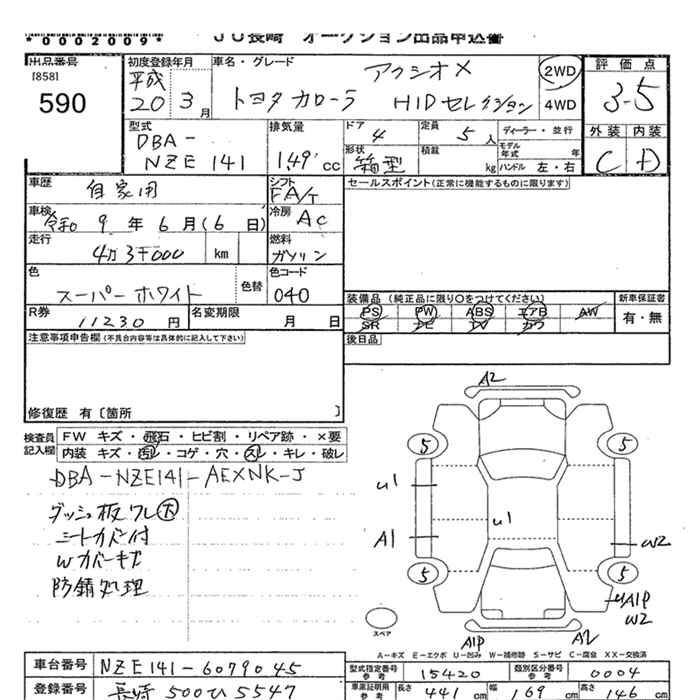 *0002009*
JU長崎 オークション出品申込書
出品番号
[858]
590
初度登録年月
平成
20 3月
車名・グレード
アクシオX
トヨタ カローラ HIDセレクション
2WD
4WD
評価点
3.5
外装 内装
C D
型式
DBA-
NZE 141
排気量
149 cc
ドア
4
定員
5人
ディーラー・並行
形状
箱型
積載
kg
モデル年式 年
ハンドル 左・右
車歴
自家用
シフト
FA/T
セールスポイント(正常に機能するものに限ります)
車検
令和 9年 6月(6日)
冷房
AC
走行
4万3千000 km
燃料
ガソリン
色
スーパーホワイト
色替
色コード
040
装備品(純正品に限り○をつけてください)
新車保証書
PS PW ABS エアB AW
SR ナビ TV カワ
有・無
R券
11230円
名変期限
月 日
後日品
注意事項申告欄(不具合内容等は具体的に記入して下さい)
修復歴 有〔箇所 〕
検査員記入欄
FW キズ・飛石・ヒビ割・リペア跡・×要
内装 キズ・汚レ・コゲ・穴・スレ・キレ・破レ
DBA-NZE141-AEXNK-J
ダッシュ板ワレ大
シートカバー付
Wカバーキズ
防錆処理
A2
5 5
U1
U1
A1
W2
5 5
UA1P
W2
スペア
A1P
A2
A-キズ E-エクボ U-凹み W-補修跡 S-サビ C-腐食 XX-交換済
車台番号
NZE141-6079045
型式指定番号 参考
15420
類別区分番号 参考
0004
登録番号
長崎 500ひ5547
車庫証明用 参考
長さ 441cm
幅 169cm
高さ 146cm